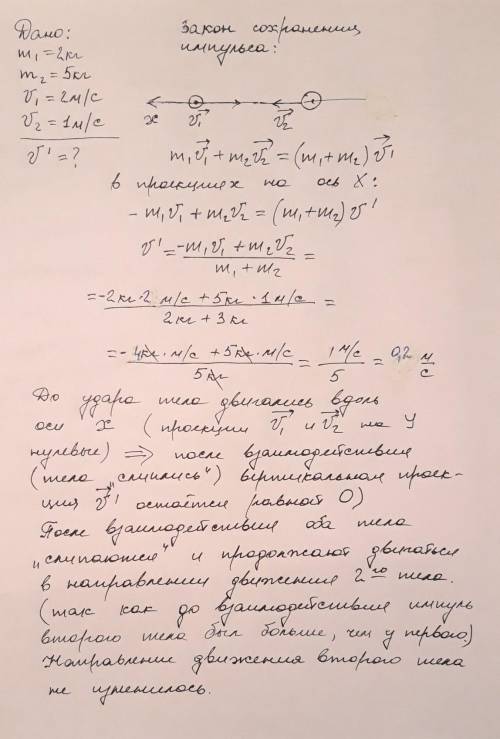 Дано:
m₁ = 2кг
m₂ = 5кг
v₁ = 2м/с
v₂ = 1м/с
v' = ?
Закон сохранения
импульса:
x v₁→ v₂→
m₁v₁→ + m₂v₂→ = (m₁+m₂) v→'
в проекциях на ось X:
- m₁v₁ + m₂v₂ = (m₁+m₂) v'
v' = (-m₁v₁ + m₂v₂) / (m₁ + m₂) =
= (-2кг·2 м/с + 5кг·1м/с) / (2кг + 3кг) =
= (-4кг·м/с + 5кг·м/с) / 5кг = 1м/с / 5 = 0,2 м/с
До удара тела двигались вдоль
оси x (проекции v₁→ и v₂→ на У
нулевые) ⇒ после взаимодействия
(тела „слиплись“) вертикальная проек-
ция v→' остаётся (равной 0)
После взаимодействия оба тела
„слипаются“ и продолжают двигаться
в направлении движения 2го тела.
(так как до взаимодействия импульс
второго тела был больше, чем у первого.)
Направление движения второго тела
не изменилось.